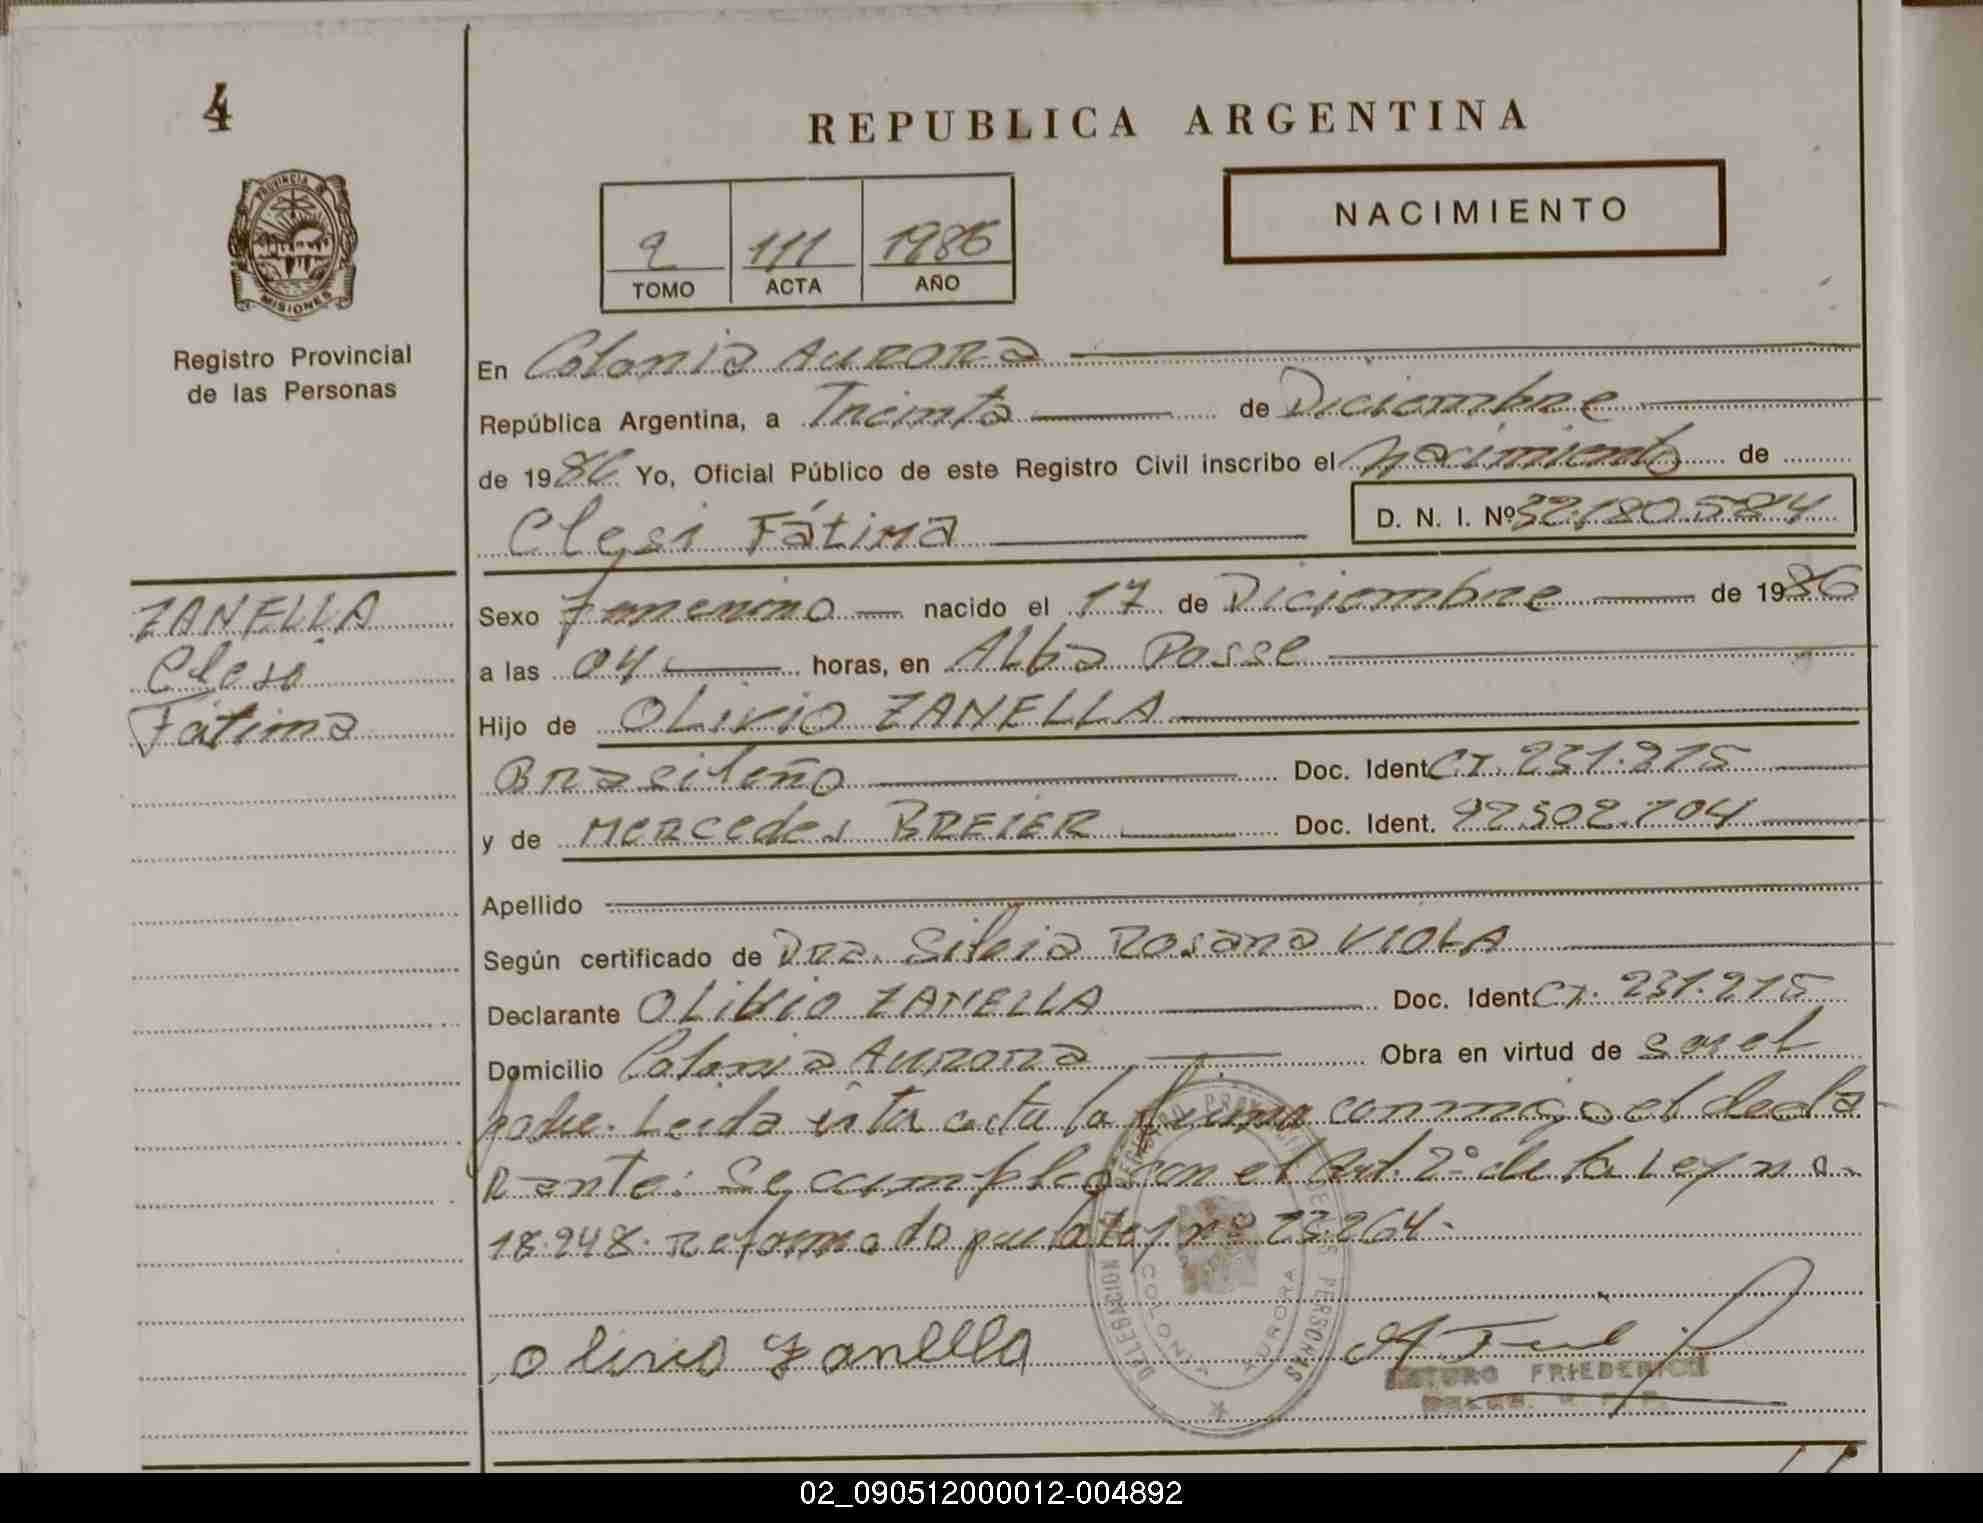 4
REPUBLICA ARGENTINA
PROVINCIA DE
MISIONES
Registro Provincial
de las Personas
2 111 1986
TOMO ACTA AÑO
NACIMIENTO
En Colonia Aurora
República Argentina, a Treinta de Diciembre
de 1986 Yo, Oficial Público de este Registro Civil inscribo el Nacimiento de
Clesi Fátima D. N. I. Nº 32.180.584
ZANELLA
Clesi
Fátima
Sexo Femenino nacido el 17 de Diciembre de 1986
a las 04 horas, en Alba Posse
Hijo de OLivio ZANELLA
Brasileño Doc. Ident. CI. 231.215
y de Mercedes BREIER Doc. Ident. 92.502.704
Apellido
Según certificado de Dra. Silvia Rosana VIOLA
Declarante OLivio ZANELLA Doc. Ident. CI. 231.215
Domicilio Colonia Aurora Obra en virtud de ser el
padre. Leida ésta acta la firma conmigo el decla
rante: Se cumplió con el Art. 2º de la Ley nº
18.248. Reformado por la Ley nº 23.264.
DELEGACION REGISTRO PROVINCIAL DE LAS PERSONAS
COLONIA AURORA
olivio Zanella
ARTURO FRIEDERICH
02_090512000012-004892